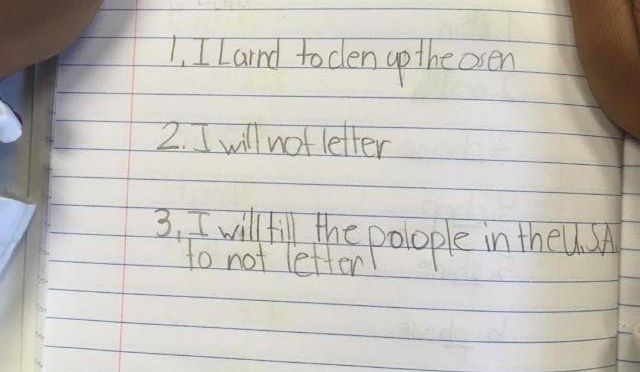 1. I Larnd to clen up the osen
2. I will not letter
3. I will till the polople in the U.S.A.
to not letter